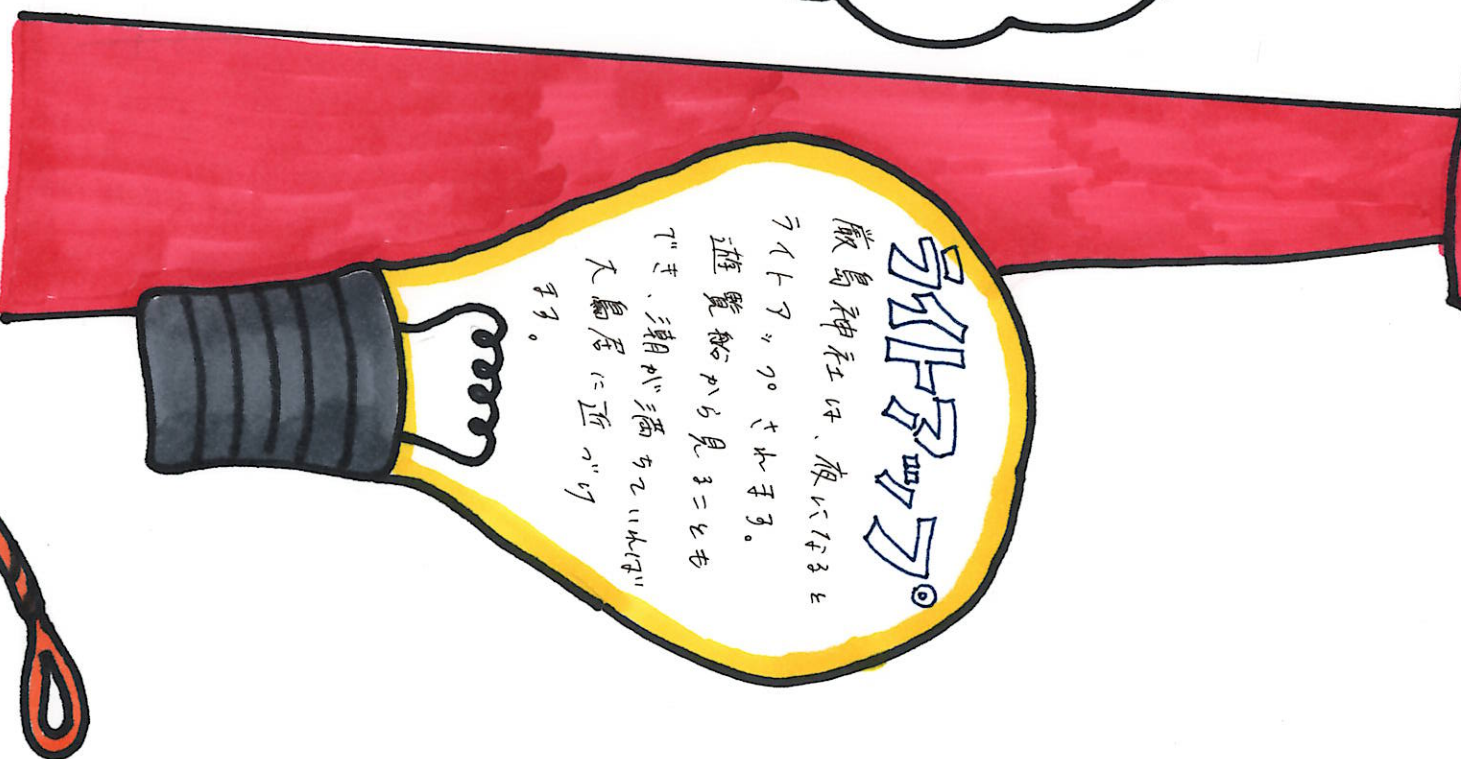 ライトアップ
厳島神社は、夜になると
ライトアップされます。
遊覧船から見ることも
でき、潮が満ちていれば
大鳥居に近づけ
ます。